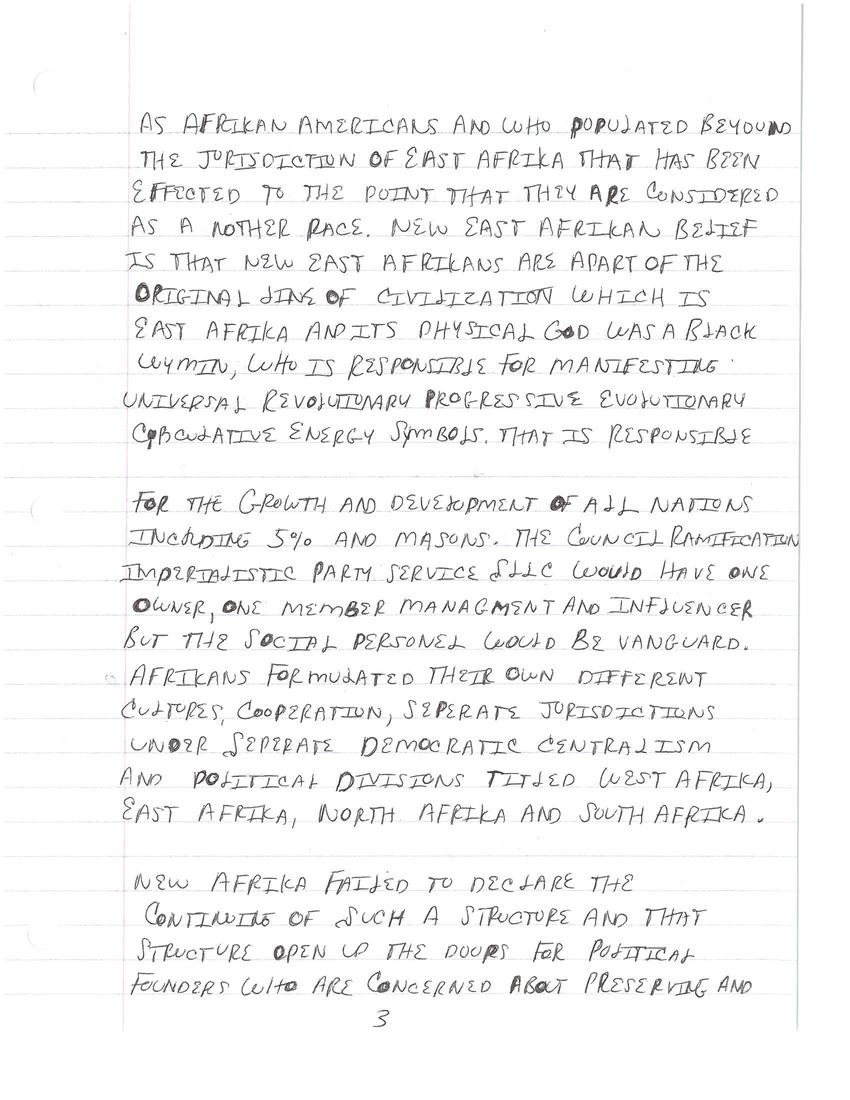 AS AFRIKAN AMERICANS AND WHO POPULATED BEYOUND
THE JURISDICTION OF EAST AFRIKA THAT HAS BEEN
EFFECTED TO THE POINT THAT THEY ARE CONSIDERED
AS A NOTHER RACE. NEW EAST AFRIKAN BELIEF
IS THAT NEW EAST AFRIKANS ARE APART OF THE
ORIGINAL LINE OF CIVILIZATION WHICH IS
EAST AFRIKA AND ITS PHYSICAL GOD WAS A BLACK
WYMIN, WHO IS RESPONSIBLE FOR MANIFESTING
UNIVERSAL REVOLUTIONARY PROGRESSIVE EVOLUTIONARY
ENERGY SYMBOLS. THAT IS RESPONSIBLE
FOR THE GROWTH AND DEVELOPMENT OF ALL NATIONS
INCLUDING 5% AND MASONS. THE COUNCIL RAMIFICATION
IMPERIALISTIC PARTY SERVICE SLLC WOULD HAVE ONE
OWNER, ONE MEMBER MANAGMENT AND INFLUENCER
BUT THE SOCIAL PERSONEL WOULD BE VANGUARD.
AFRIKANS FORMULATED THEIR OWN DIFFERENT
CULTURES, COOPERATION, SEPERATE JURISDICTIONS
UNDER SEPERATE DEMOCRATIC CENTRALISM
AND POLITICAL DIVISIONS TITLED WEST AFRIKA,
EAST AFRIKA, NORTH AFRIKA AND SOUTH AFRIKA.
NEW AFRIKA FAILED TO DECLARE THE
CONTINUING OF SUCH A STRUCTURE AND THAT
STRUCTURE OPEN UP THE DOORS FOR POLITICAL
FOUNDERS WHO ARE CONCERNED ABOUT PRESERVING AND
3